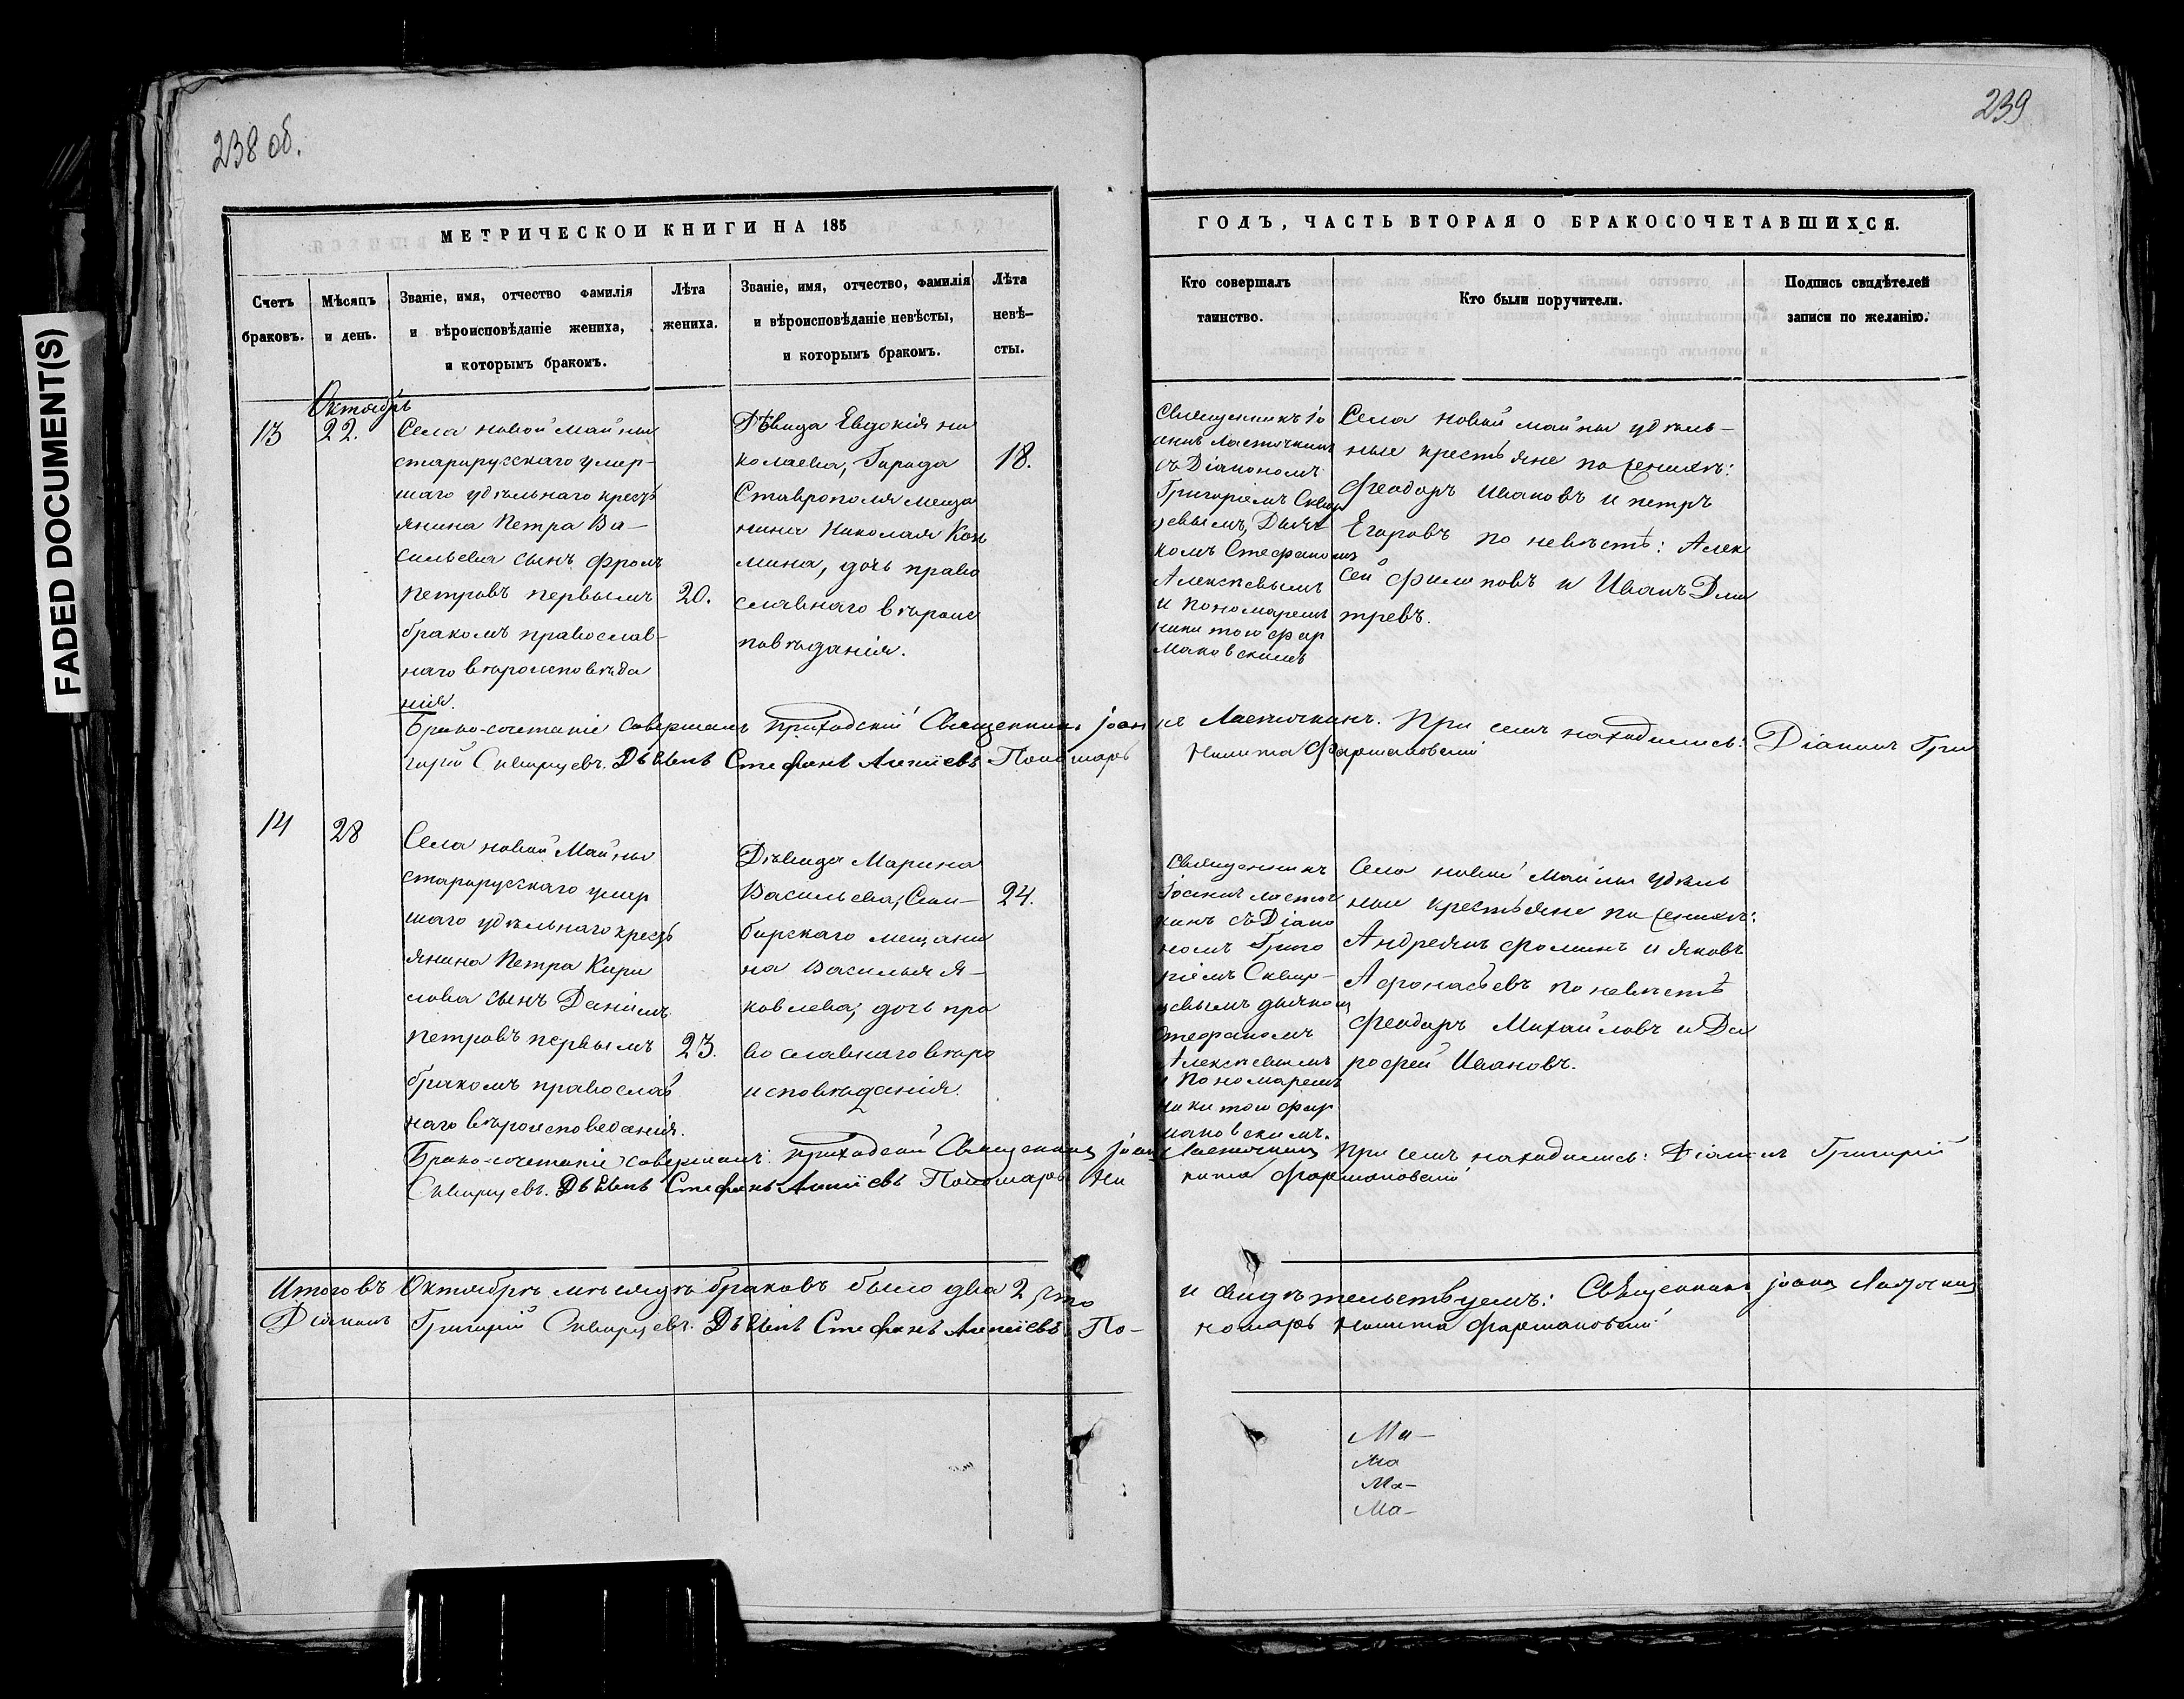 238 об.
239
FADED DOCUMENT(S)
МЕТРИЧЕСКОЙ КНИГИ НА 185
ГОДЪ, ЧАСТЬ ВТОРАЯ О БРАКОСОЧЕТАВШИХСЯ.
Счетъ
браковъ.
Мѣсяцъ
и день.
Званіе, имя, отчество фамилія
и вѣроисповѣданіе жениха,
и которымъ бракомъ.
Лѣта
жениха.
Званіе, имя, отчество, фамилія
и вѣроисповѣданіе невѣсты,
и которымъ бракомъ.
Лѣта
невѣ-
сты.
Кто совершалъ
таинство.
Кто были поручители.
Подпись свидѣтелей
записи по желанію.
Октябрь
13
22.
Села новой майны
старорусскаго умер-
шаго удѣльнаго кресть
янина Петра Ва-
сильева сынъ Фролъ
петровъ первымъ
бракомъ православ-
наго вѣроисповѣда
нія.
20.
Дѣвица Евдокія ни
колаева, Города
Ставрополя меща
нина Николая Коз
мина, дочь право
славнаго вѣроис
повѣданія.
18.
Священникъ Іо
аннъ Ласточкинъ
съ Діакономъ
Григоріемъ Сквор
цевымъ, Дьяч
комъ Стефаномъ
Алексѣевымъ
и пономаремъ
никитою фар
маковскимъ
Села новой майны удѣль-
ные крестьяне по женихѣ:
Феодоръ Ивановъ и петръ
Егоровъ по невѣстѣ: Алек
сей филиповъ и Иванъ Дми
тревъ.
Брако-сочетаніе совершалъ приходскій Священникъ Іоаннъ Ласточкинъ. При семъ находились: Діаконъ Гри
горій Скворцевъ. Дьячекъ Стефанъ Алексіевъ Пономарь Никита Фармаковскій
14
28
Села новой Майны
старорусскаго умер
шаго удѣльнаго кресть
янина Петра Кири
лова сынъ Даніилъ
петровъ первымъ
бракомъ православ
наго вѣроисповеданія.
23.
Дѣвица Марина
Васильева, Сим-
бирскаго мещани
на Василья Я-
ковлева, дочь пра
вославнаго вѣро
исповѣданія.
24.
Священникъ
Іоаннъ ласточ
кинъ съ Діако
номъ Григо
ріемъ Сквор-
цевымъ дьячком
стефаномъ
Алексѣевымъ
и пономаремъ
никитою фар
маковскимъ.
Села новой Майны удѣль
ные крестьяне по женихѣ:
Андреянъ фоминъ и яковъ
Афонасьевъ по невѣстѣ
феодоръ Михайловъ и До
рофей Ивановъ.
Брако-сочетаніе совершалъ приходской Священникъ Іоаннъ Ласточкинъ При семъ находились: Діаконъ Григорій
Скворцевъ. Дьячекъ Стефанъ Алексіевъ Пономарь Ни кита Фармаковскій
Итого въ Октябрѣ мѣсяцѣ браковъ было два 2, что и свидѣтельствуемъ: Священникъ Іоаннъ Ласточкинъ
Діаконъ Григорій Скворцевъ. Дьячекъ Стефанъ Алексіевъ По- номарь Никита Фармаковскій
Ма-
Ма
Ма-
Ма-